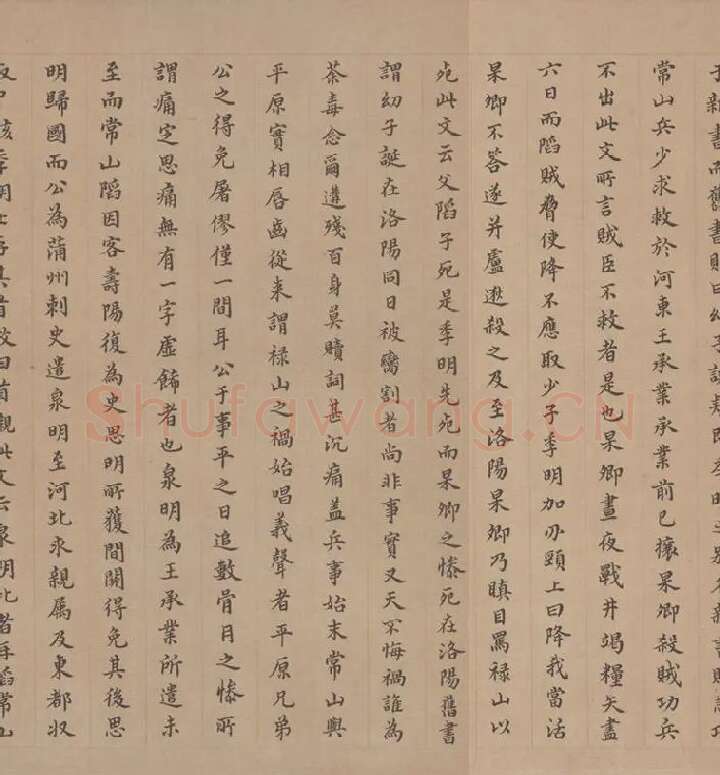 新書而舊書則曰幼子
常山兵少求救於河東王承業承業前已攘杲卿殺賊功兵
不出此文所言賊臣不救者是也杲卿晝夜戰井竭糧矢盡
六日而陷賊脅使降不應取少子季明加刃頸上曰降我當活
杲卿不荅遂并盧逖殺之及至洛陽杲卿乃瞋目罵祿山以
死此文云父陷子死是季明先死而杲卿之慘死在洛陽舊書
謂幼子誕在洛陽同日被臠割者尚非事實又天不悔禍誰為
荼毒念爾遘殘百身莫贖詞甚沉痛蓋兵事始末常山與
平原實相唇齒從来謂祿山之禍始唱義聲者平原兄弟
公之得免屠僇僅一間耳公于事平之日追數骨月之慘所
謂痛定思痛無有一字虛餙者也泉明為王承業所遣未
至而常山陷因客壽陽復為史思明所獲間關得免其後思
明歸國而公為蒲州刺史遣泉明至河北求親属及東都収
Shufawang.CN